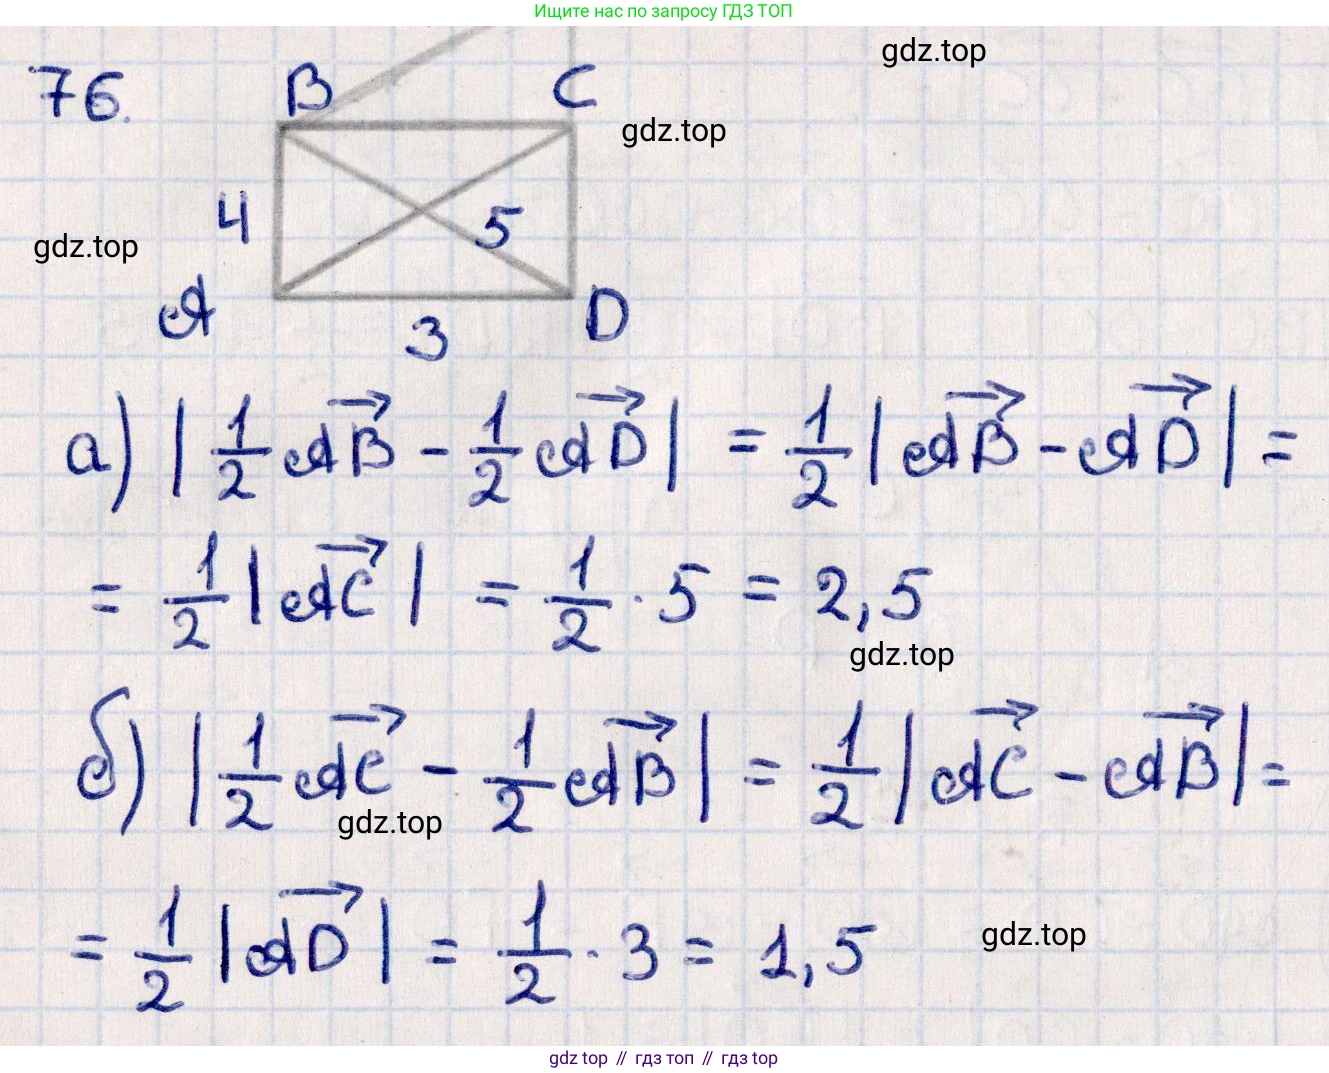 Ищите нас по запросу ГДЗ ТОП
gdz.top
76.
B
C
gdz.top
4
5
gdz.top
A
D
3
а) |1/2 AB⃗ - 1/2 AD⃗| = 1/2 |AB⃗ - AD⃗| =
= 1/2 |AC⃗| = 1/2 · 5 = 2,5
gdz.top
б) |1/2 AC⃗ - 1/2 AB⃗| = 1/2 |AC⃗ - AB⃗| =
gdz.top
= 1/2 |AD⃗| = 1/2 · 3 = 1,5
gdz.top
gdz top // гдз топ // гдз top